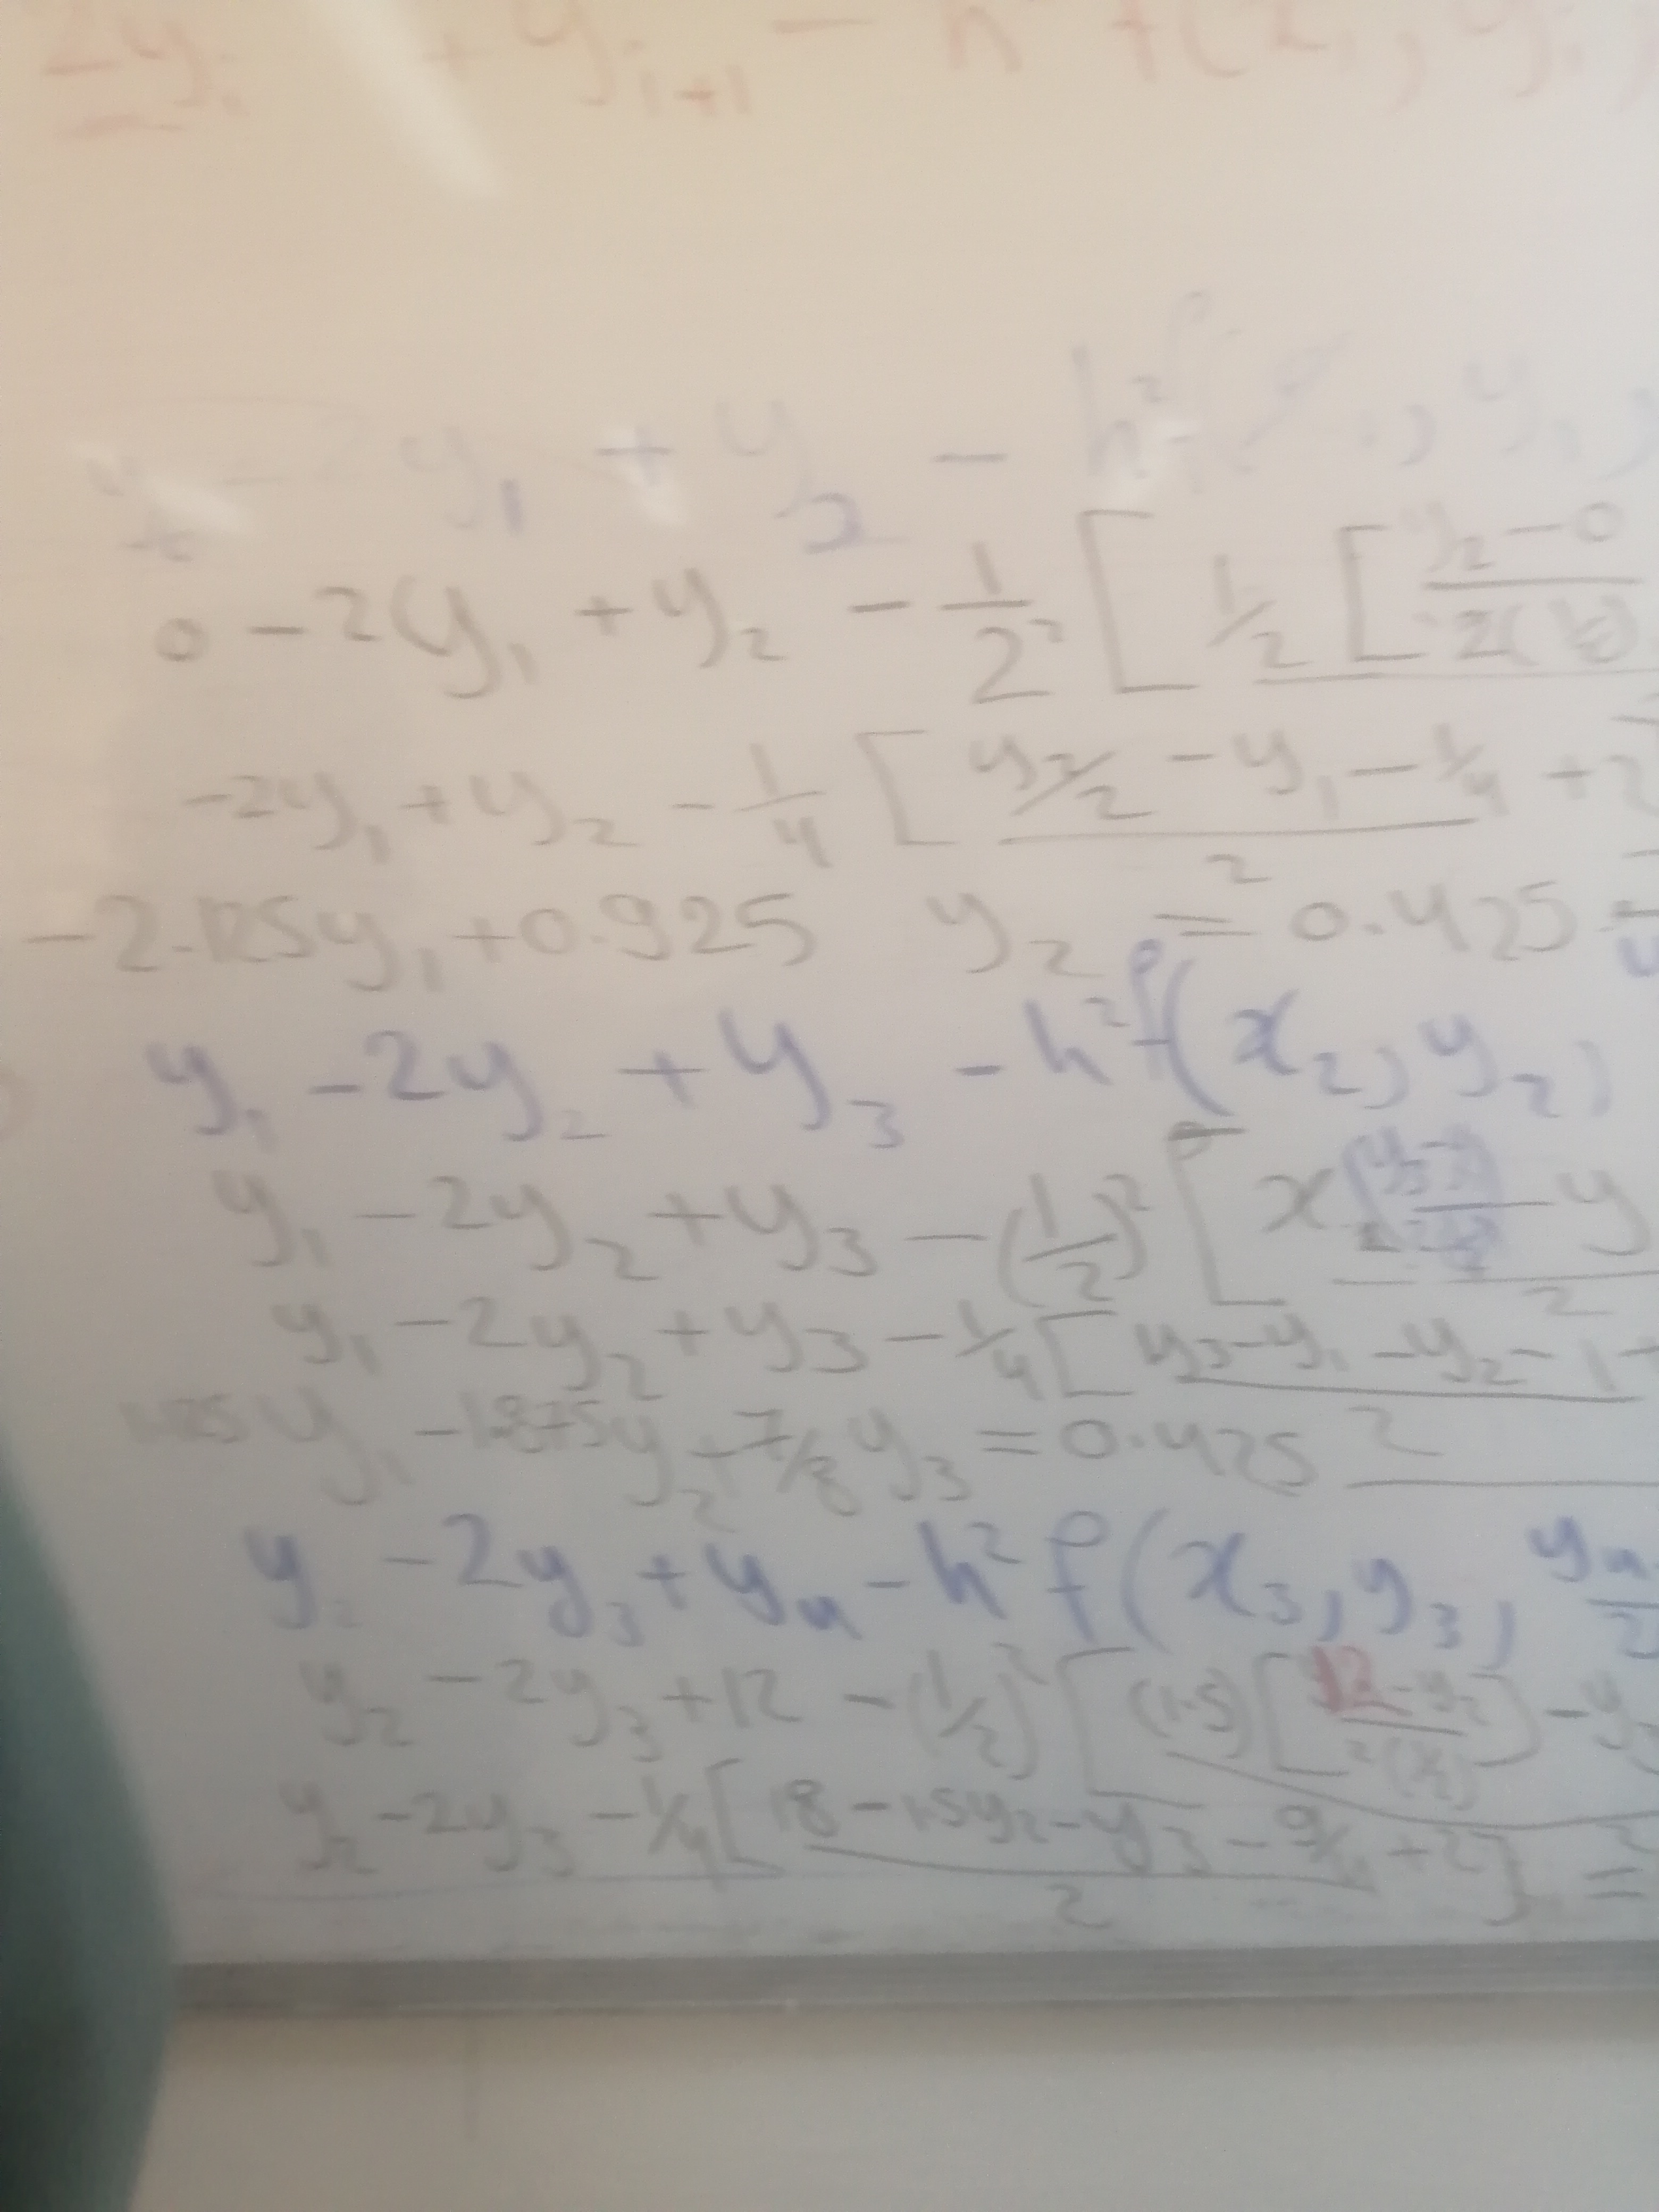 2y_i + y_{i+1} - h f(x_i, y_i,
- 2y_1 + y_2 - h^2 f( , y_1,
0 - 2y_1 + y_2 - 1/2^2 [ 1/2 [ (y_2 - 0)/2(½)
-2y_1 + y_2 - 1/4 [ (y_2/2 - y_1 - 1/4 + 2)/2
-2.125y_1 + 0.925 y_2 = 0.425
y_1 - 2y_2 + y_3 - h^2 f(x_2, y_2,
y_1 - 2y_2 + y_3 - (1/2)^2 [ x - y / 2
y_1 - 2y_2 + y_3 - 1/4 [ (y_3 - y_1 - y_2 - 1 + / 2
y_1 - 1.875y_2 + 7/8 y_3 = 0.425
y_2 - 2y_3 + y_4 - h^2 f(x_3, y_3, y_4 / 2
y_2 - 2y_3 + 12 - (1/2)^2 [ (1.5) [ (12 - y_2)/2(½) ] - y_3
y_2 - 2y_3 - 1/4 [ (18 - 1.5y_2 - y_3 - 9/4 + 2)/2 ] =